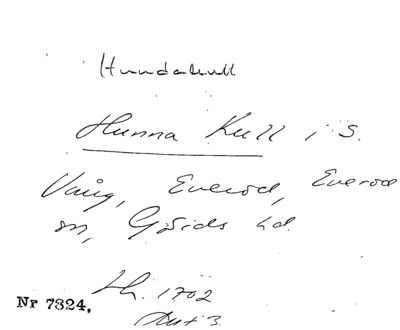 Hundakull
Hunna Kull i S.
Vång, Everöd, Everöd
sn, Gärds hd.
Lh. 1702
Akt 3.
Nr 7324.